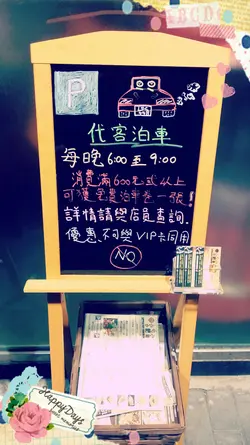 ABCD
P
代客泊車
每晚 6:00 至 9:00
消費滿600元或以上
可獲免費泊車卷一張!
詳情請與店員查詢.
優惠不可與VIP卡同用
NO
HAPPY Days